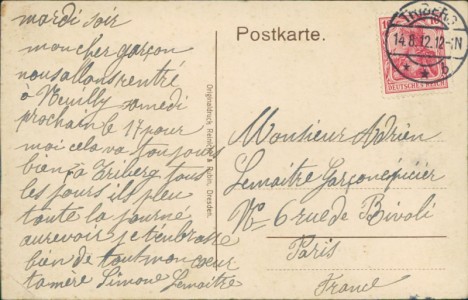 mardi soir
mon cher garçon
nous allons rentré
à Neuilly samedi
prochain le 17 pour
moi cela va toujours
bien à Triberg tous
les jours ils pleu
toute la journé
aurevoir je t'enbrasse
bien de tout mon cœur
ta mère Simone Lemaitre
Postkarte.
TRIBERG
14.8.12.12-1N
* * b
10
DEUTSCHES REICH
Originaldruck Römmler Dresden.
Monsieur Adrien
Lemaitre Garçon épicier
No 6 rue de Rivoli
Paris
France